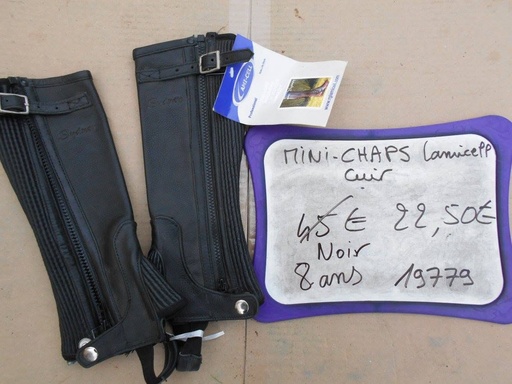 MINI-CHAPS Lamicell
cuir
45€ 22,50€
Noir
8 ans 19779